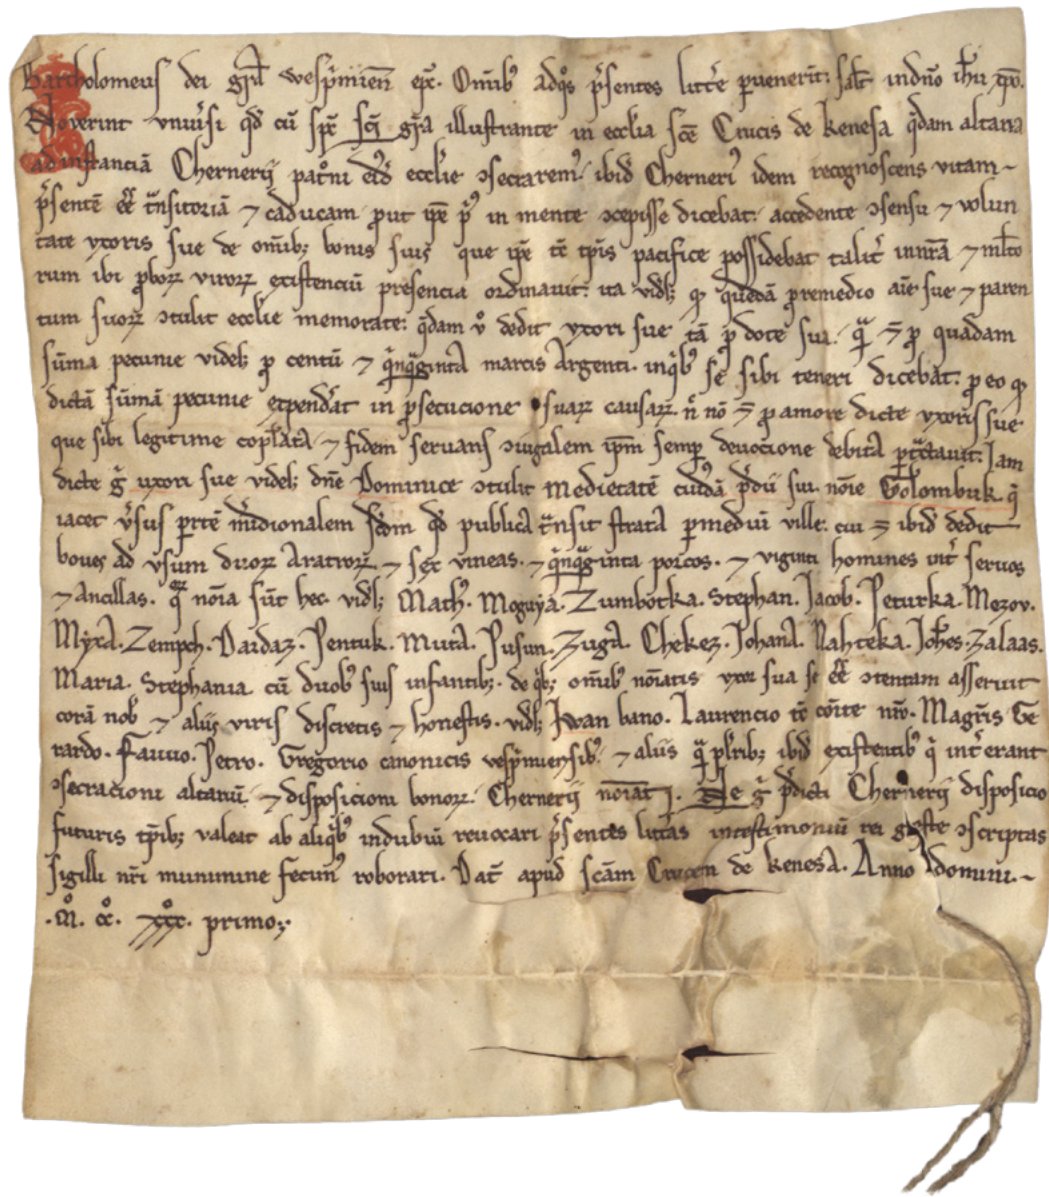 Bartholomeus dei gr̃a wesp̃miẽn ep̃c. Om̃ibꝰ adqͦs p̃sentes litt̃e ꝑuenerĩt: sal̃t indño ih̃u xp̃o.
Nouerint vniũsi qđ cũ sp̃c sc̃i gr̃a illustrante in eccl̃ia sc̃e Crucis de kenesa q̃dam altaria
ad instanciã Chernerij pat̊ni eiꝰđ eccl̃ie ↄsecraremꝰ. ibiđ Chernerꝰ idem recognoscens vitam ~
p̃sentẽ eẽ t̃nsitoriã ⁊ caducam ꝓut ip̃e p̃ꝰ in mente ↄcepisse dicebat: accedente ↄsensu ⁊ volun
tate vxoris sue de om̃ibꝫ bonis suis que ip̃e tc̃ tp̃is pacifice possidebat talit̃ in nr̃a ⁊ ml̃to
rum ibi ꝓboꝝ viroꝝ existenciũ presencia ordinauit: ita vidlꝫ qꝫ quedã ꝓremedio aĩe sue ⁊ paren
tum suoꝝ ↄtulit eccl̃ie memorate: q̃dam v̊ dedit vxori sue tã ꝓ dote sua. q̃ ⁊ ꝓ quadam
sũma pecunie videlꝫ ꝓ centũ ⁊ q̃nq̃ginta marcis argenti. inq̃bꝰ se sibi teneri dicebat. ꝓ eo qꝫ
dictã sũmã pecunie expend̃at in ꝓsecucione suaꝝ causaꝝ. ñ nõ ⁊ ꝓ amore dicte vxoris sue
que sibi legitime cop̃lata ⁊ fidem seruans ↄiugalem ip̃m semꝑ deuocione debita ꝑt̃ctauit: Iam
dicte g̊ uxori sue videlꝫ dñe Dominice ↄtulit medietatẽ cuiꝰdã p̃dij sui nõie Golombuk q̃
iacet v̉sus ꝑtẽ m̃idionalem sc̃dm qđ publica t̃nsit strata ꝑmediũ ville: cui ⁊ ibiđ dedit
boues ad vsum duoꝝ aratroꝝ ⁊ sex vineas. ⁊ q̃nq̃ginta porcos. ⁊ viginti homines int̃ seruos
⁊ ancillas. qꝝ nõia sũt hec. vidlꝫ Math̃. Moguya. Zumbotka. Stephan. Jacob. Peturka. Mozov.
Myxa. Zempch. Daidaz. Pentuk. Muta. Pusun. Zuga. Chekez. Johana. Nahteka. Joh̃es. Zalaas.
Maria. Stephania cũ duobꝰ suis infantibꝫ. de q̃bꝫ om̃ibꝰ nõiatis vxor sua se eẽ ↄtentam asseruit
corã nob̃ ⁊ alijs viris discretis ⁊ honestis. vidlꝫ Iwan bano. Laurencio tc̃ com̃te nr̃o. Magr̃is Ge
rardo. Fauuo. Petro. Gregorio canonicis vesp̃miensibꝰ. ⁊ alijs q̃ pl̃ribꝫ ibiđ existentibꝰ q̃ int̃erant
ↄsecracioni altariũ ⁊ disposicioni bonoꝝ. Chernerij nõiati. Ne g̊ p̃dicti Chernerij disposicio
futuris tp̃ibꝫ valeat ab aliq̃bꝰ indubiũ reuocari p̃sentes litt̃as intestimoniũ rei geste ↄscriptas
sigilli nr̃i munimine fecimꝰ roborari. Dat̃ apud sc̃am Crucem de kenesa. Anno domini. ~
. M̊. c̊c̊. xx̊x. primoꝫ.